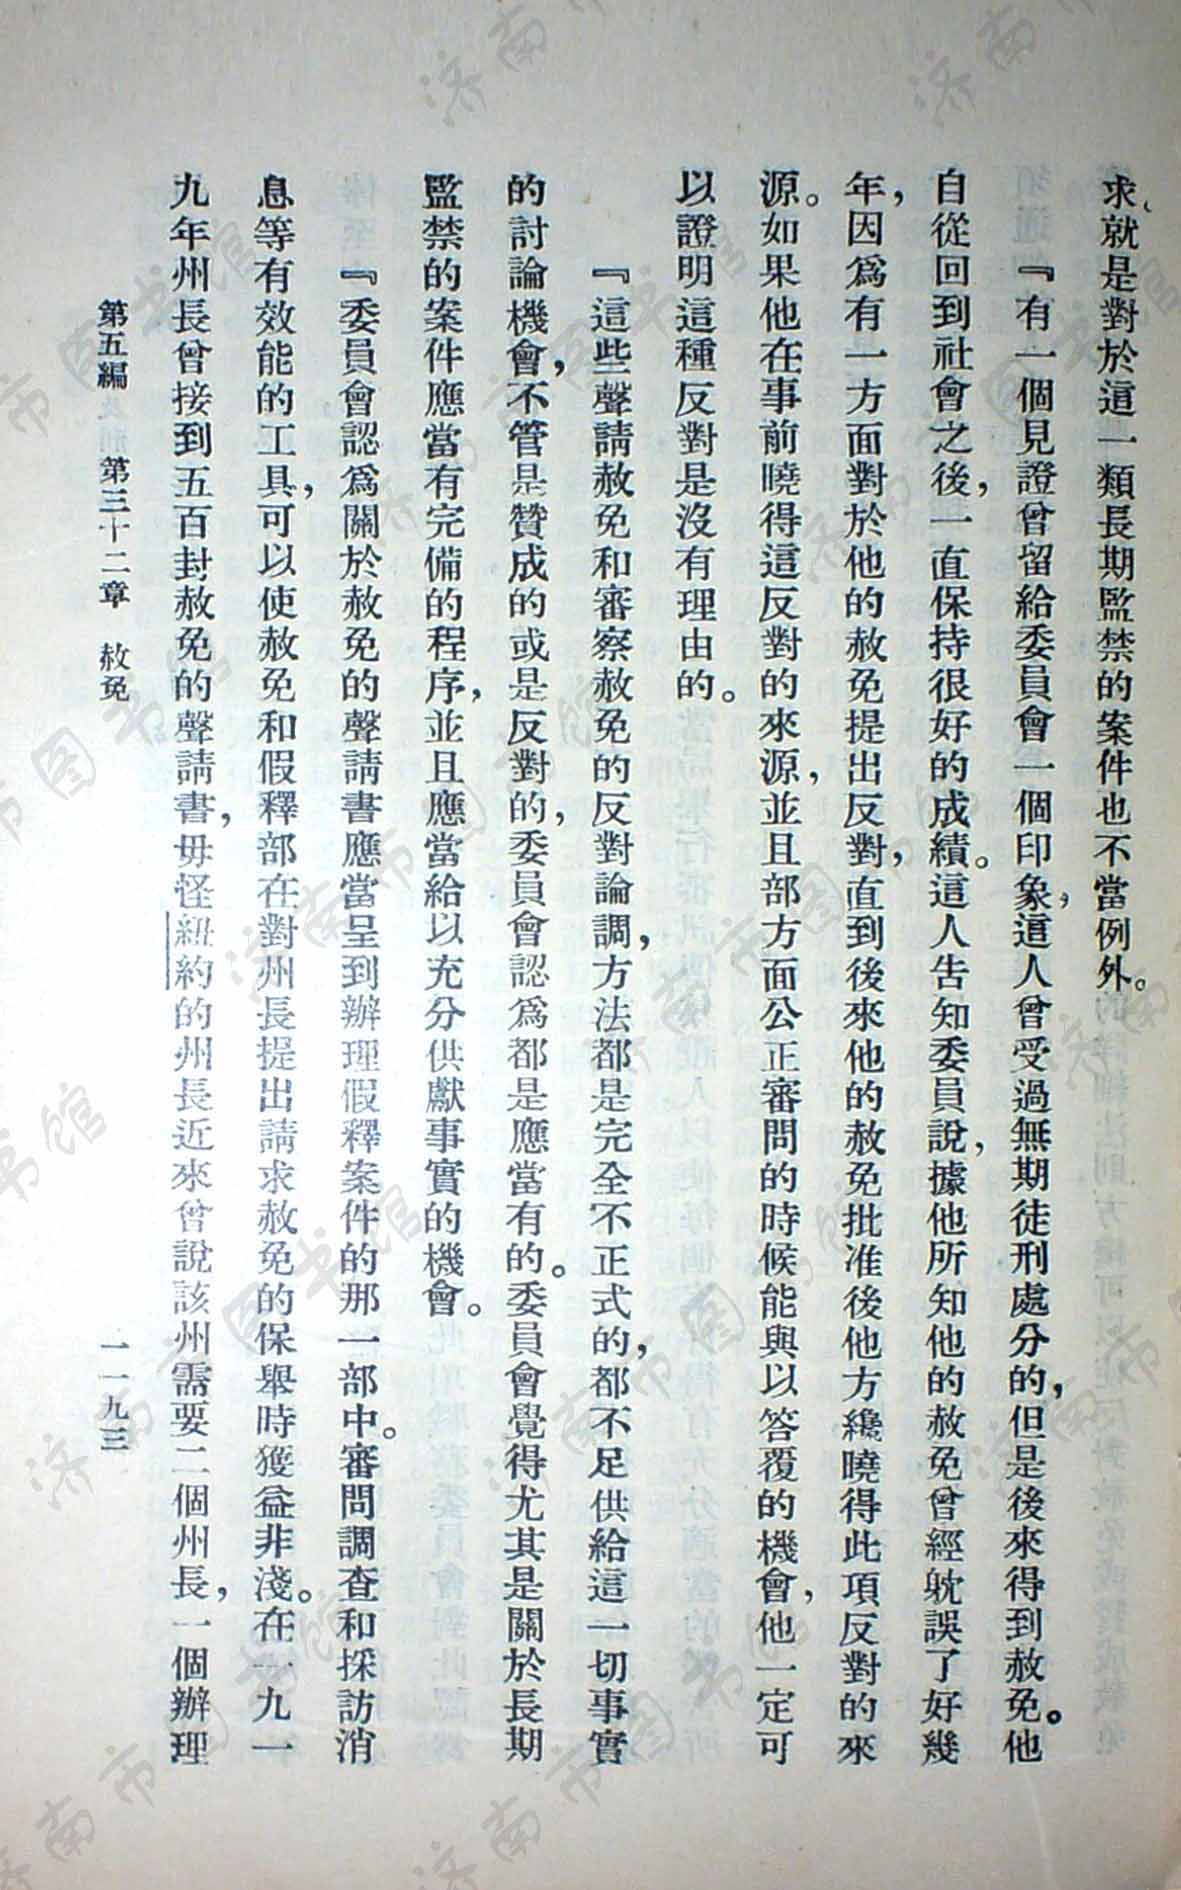 求、就是對於這一類長期監禁的案件也不當例外。
『有一個見證曾留給委員會一個印象，這人曾受過無期徒刑處分的，但是後來得到赦免。他
自從回到社會之後，一直保持很好的成績。這人告知委員說，據他所知他的赦免曾經躭誤了好幾
年，因爲有一方面對於他的赦免提出反對，直到後來他的赦免批准後他方纔曉得此項反對的來
源。如果他在事前曉得這反對的來源，並且部方面公正審問的時候能與以答覆的機會，他一定可
以證明這種反對是沒有理由的。
『這些聲請赦免和審察赦免的反對論調，方法都是完全不正式的，都不足供給這一切事實
的討論機會，不管是贊成的或是反對的，委員會認爲都是應當有的。委員會覺得尤其是關於長期
監禁的案件應當有完備的程序，並且應當給以充分供獻事實的機會。
『委員會認爲關於赦免的聲請書應當呈到辦理假釋案件的那一部中。審問調查和採訪消
息等有效能的工具，可以使赦免和假釋部在對州長提出請求赦免的保舉時獲益非淺。在一九一
九年州長曾接到五百封赦免的聲請書，毋怪紐約的州長近來曾說該州需要二個州長，一個辦理
第五編 第三十二章 赦免 一一九三
济南市图书馆